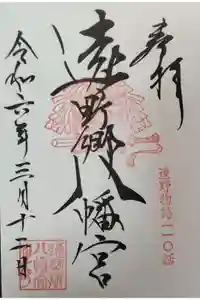 奉拝
遠野郷八幡宮
遠野物語一一〇話
令和六年三月十二日